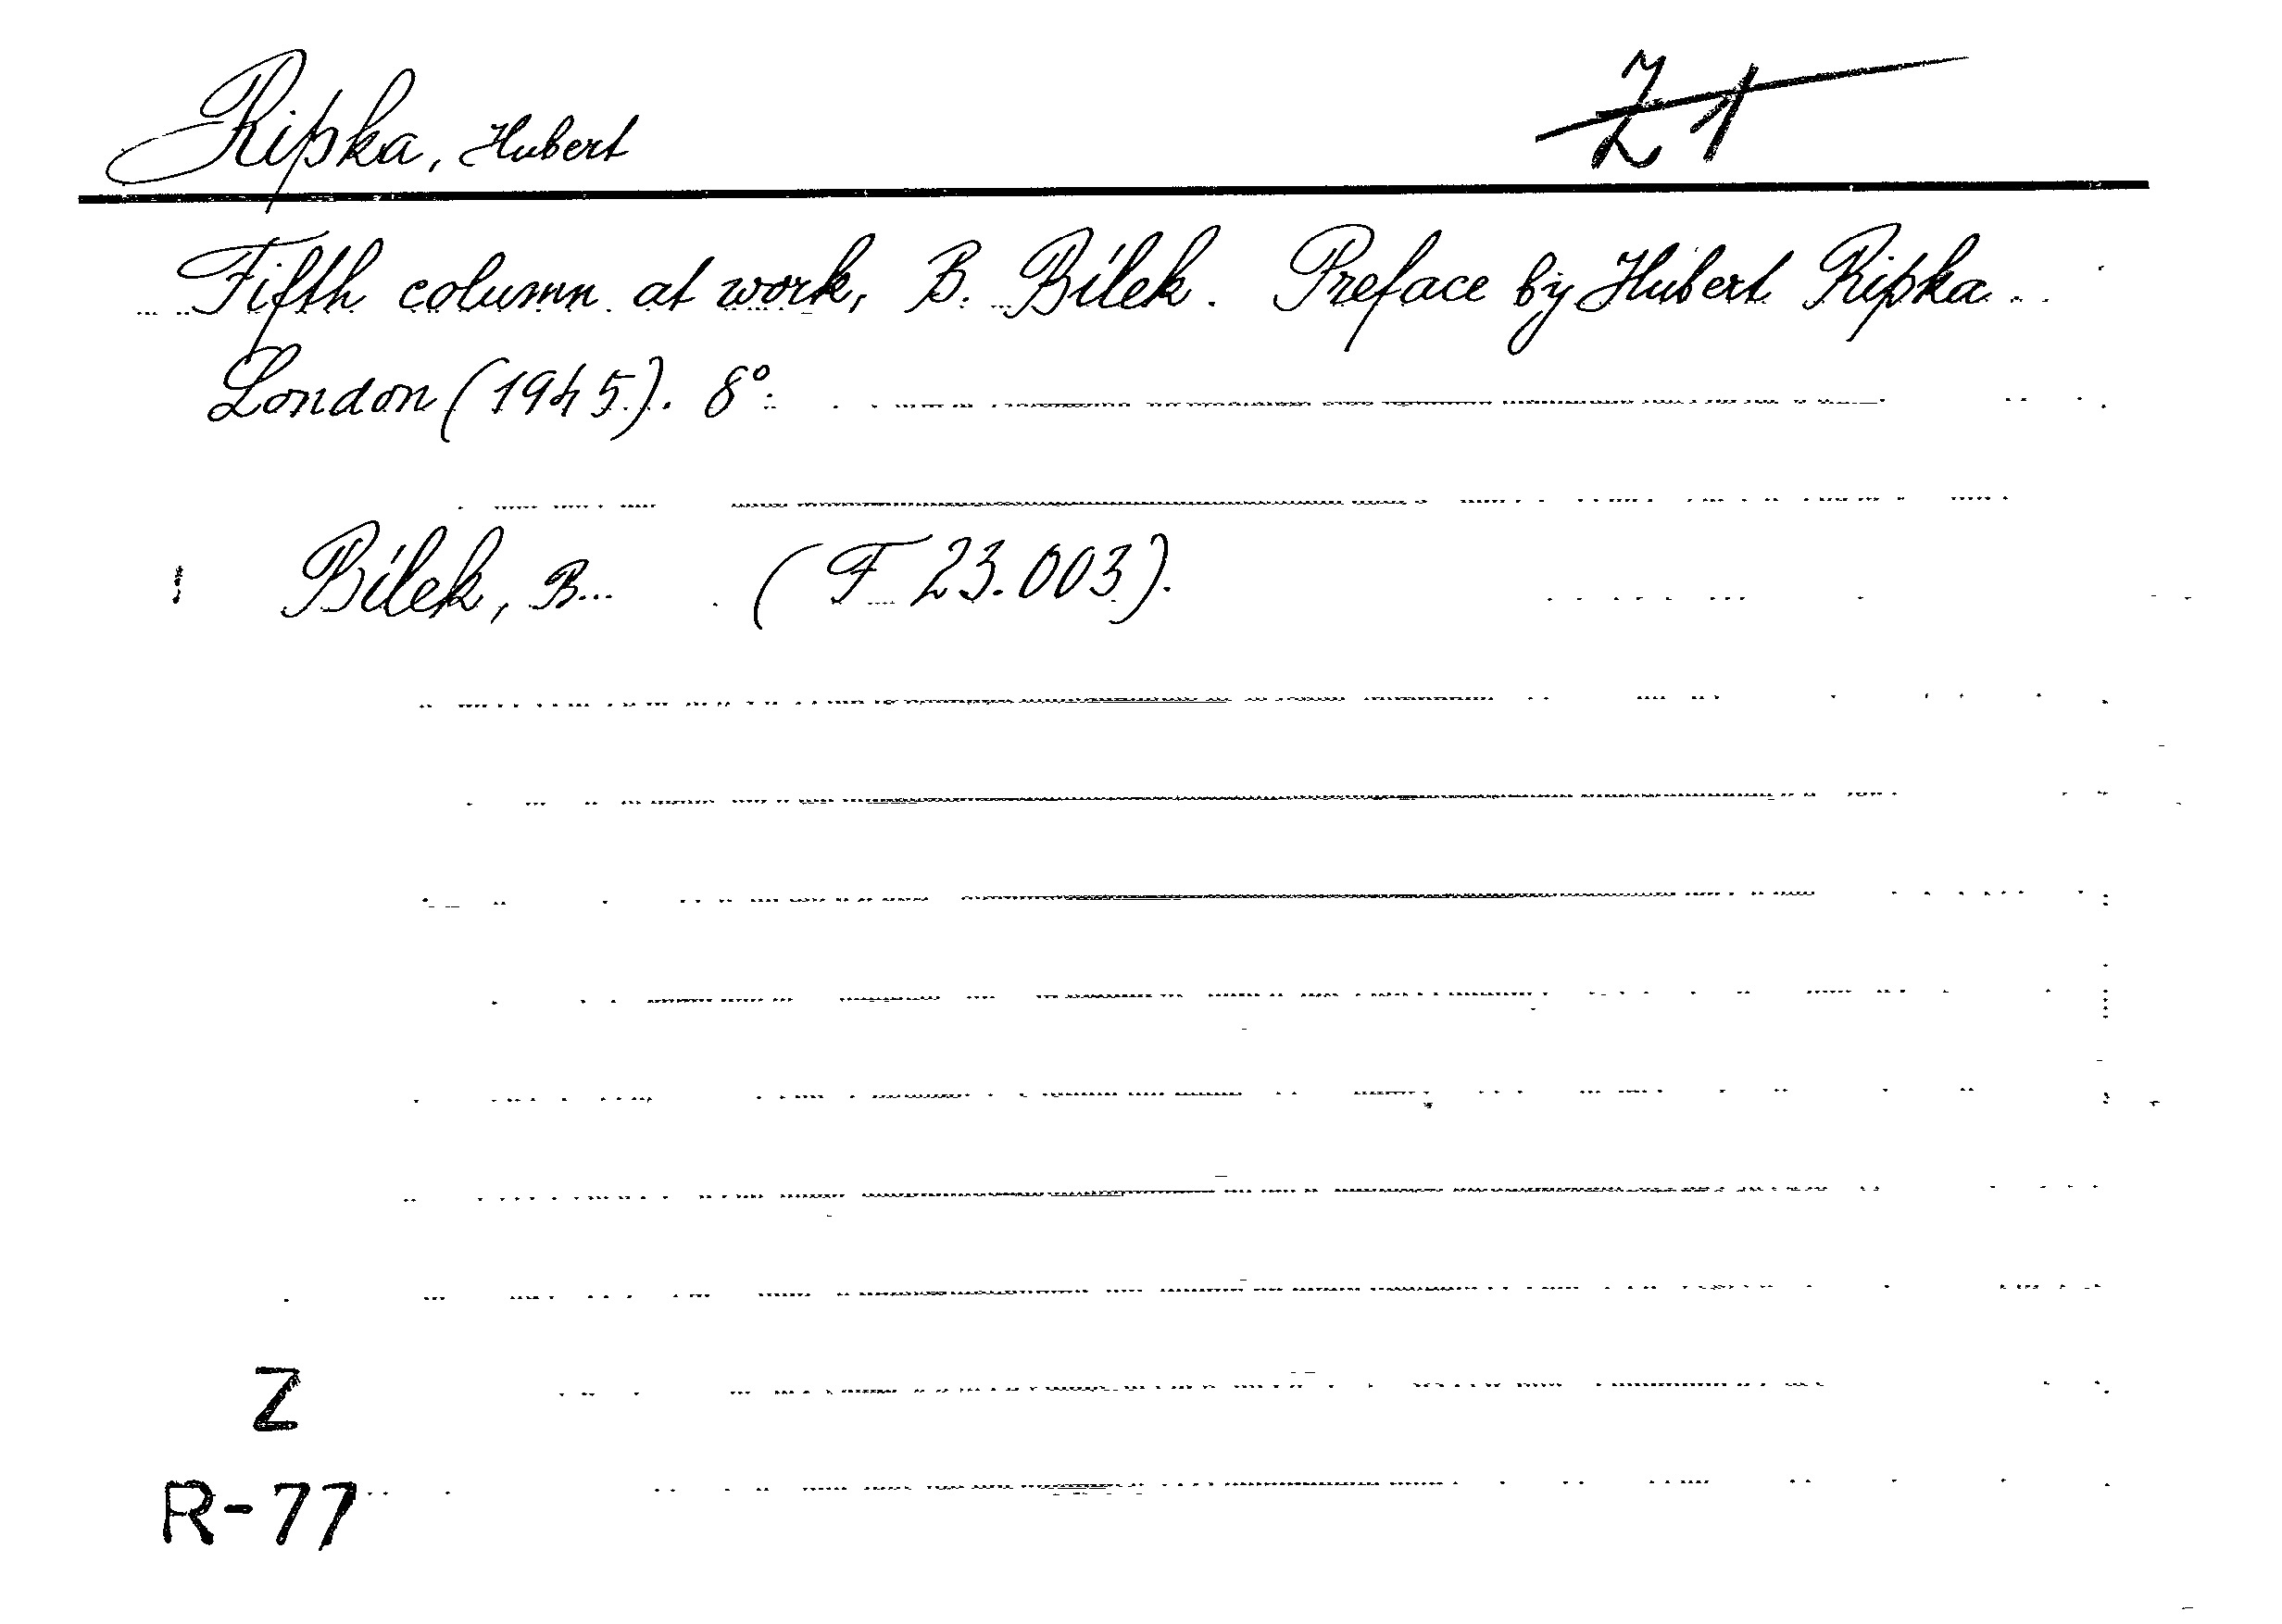 Ripka, Hubert Z1
Fifth column at work, B. Bílek. Preface by Hubert Ripka.
London (1945). 8°.
! Bílek, B... (F 23.003).
Z
R-77